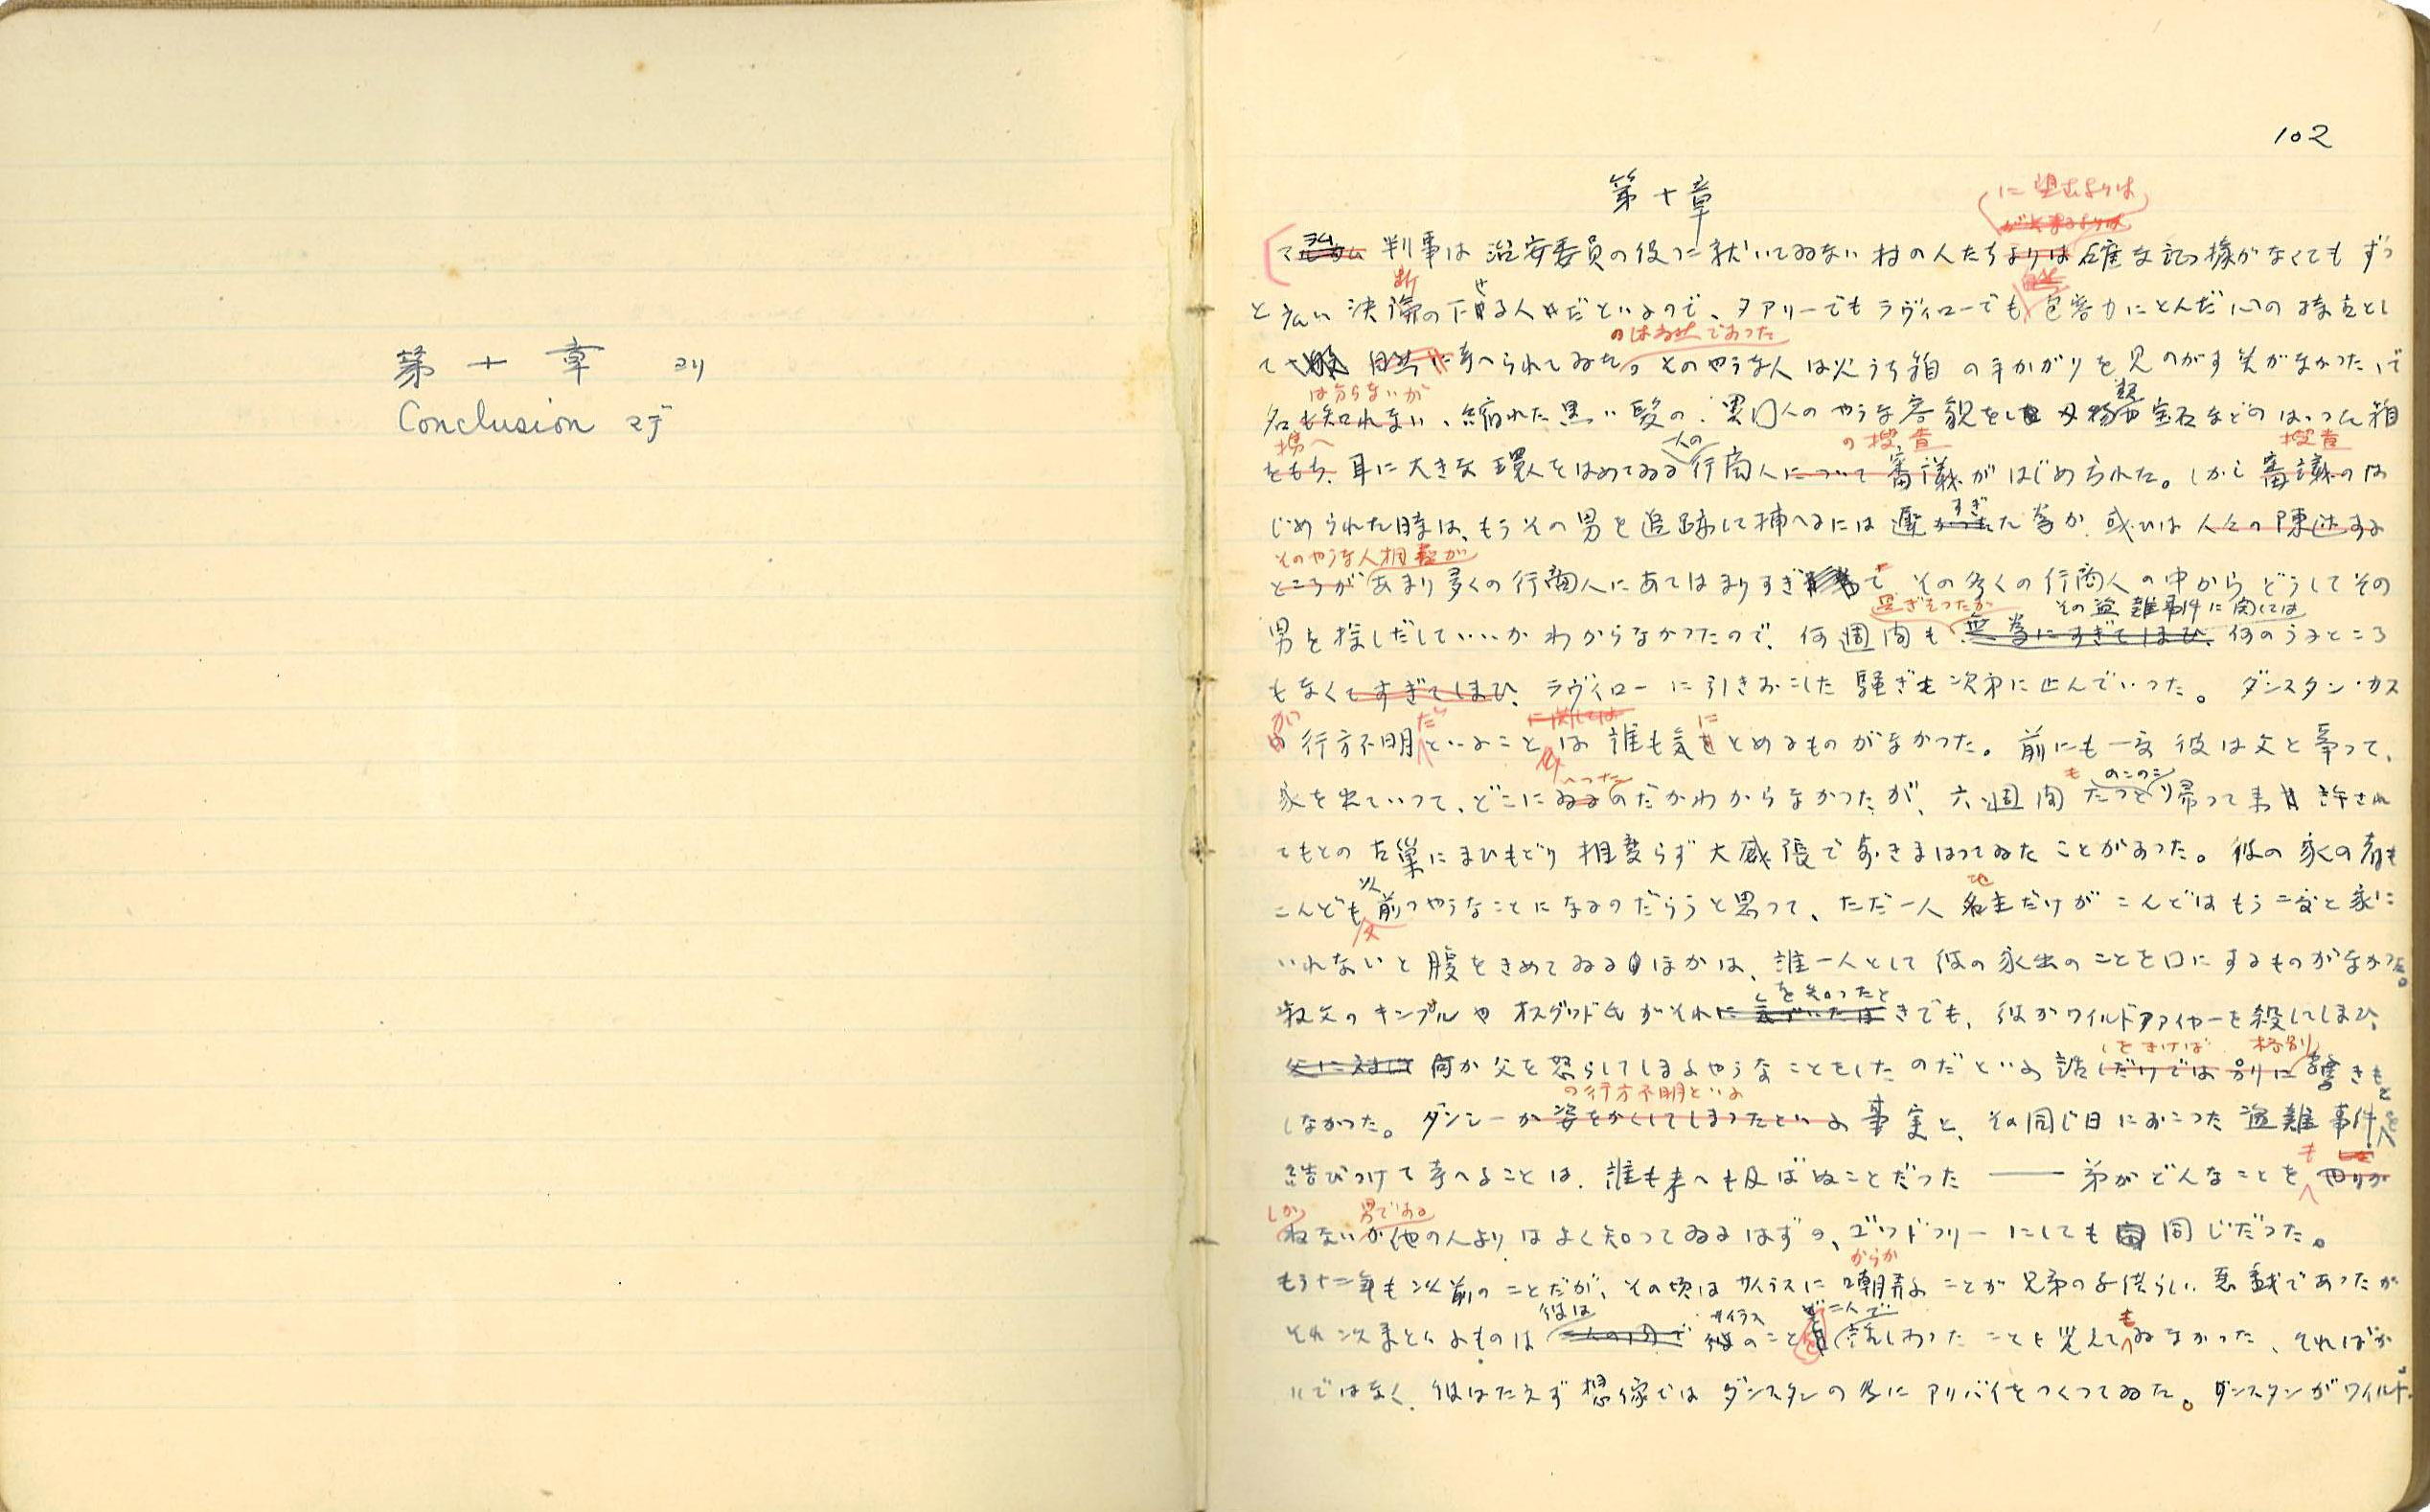 第十章 ヨリ
Conclusion マデ
102
第十章
に望むよりは
マラム 判事は 治安委員の役に就いてゐない 村の人たちよりは 確な証據がなくても ずっ
と広い 決断の下せる人だといふので、タアリーでもラヴィローでも 包容力にとんだ心の持主とし
のは当然であつた
て 考へられてゐた。そのやうな人は火うち箱の手がかりを見のがす筈がなかつた、で
は分らないが
名も知れない、縮れた黒い髪の、異国人のやうな容貌をし 又 宝石などのはいつた箱
携へ 人の の捜査 捜査
をもち、耳に大きな環をはめてゐる行商人について審議がはじめられた。しかし審議のは
じめられた時は、もうその男を追跡して捕へるには遅すぎた為か、或ひは人々の陳述する
そのやうな人相が
ところがあまり多くの行商人にあてはまりすぎて その多くの行商人の中からどうしてその
過ぎさつたが その盗難事件に関しては
男を探しだしていゝかわからなかつたので、何週間も 無為にすぎてしまひ、何のうるところ
もなくてすぎてしまひ、ラヴィローに引きおこした騒ぎも次第に止んでいつた。ダンスタン・カス
が だ に関しては に
の行方不明といふことは 誰も気をとめるものがなかつた。前にも一度彼は父と争つて、
いつた も のこのこ
家を出ていつて、どこにゐるのだかわからなかつたが、六週間たつと帰つて来 許され
てもとの古巣にまひもどり相変らず大威張で歩きまはつてゐたことがあつた。彼の家の者も
以 地
こんども前のやうなことになるのだらうと思つて、ただ一人名主だけがこんどはもう二度と家に
いれないと腹をきめてゐるほかは、誰一人として彼の家出のことを口にするものがなかつた。
を知つたと
叔父のキンブルやオスグッド氏がそれに気づいたときでも、彼がワイルドファイヤーを殺してしまひ、
をきけば 格別
何か父を怒らしてしまふやうなことをしたのだといふ話だけでは別に驚きも
の行方不明といふ
しなかつた。ダンシーが姿をかくしてしまつたといふ事実と、その同じ日におこつた盗難事件とを
も
結びつけて考へることは、誰も考へも及ばぬことだつた —— 弟がどんなことを やりか
しか 男である
ねないか他の人よりはよく知つてゐるはずの、ゴッドフリーにしても 同じだつた。
からか
もう十二年も以前のことだが、その頃はサイラスに嘲弄ふことが兄弟の子供らしい悪戯であつたが
彼は サイラス 二人で
それ以来といふものは 二人の間で 彼のことを話しあつたことを覚えてもゐなかつた、そればか
りではなく、彼はたえず想像ではダンスタンの為にアリバイをつくつてゐた。ダンスタンがワイルド